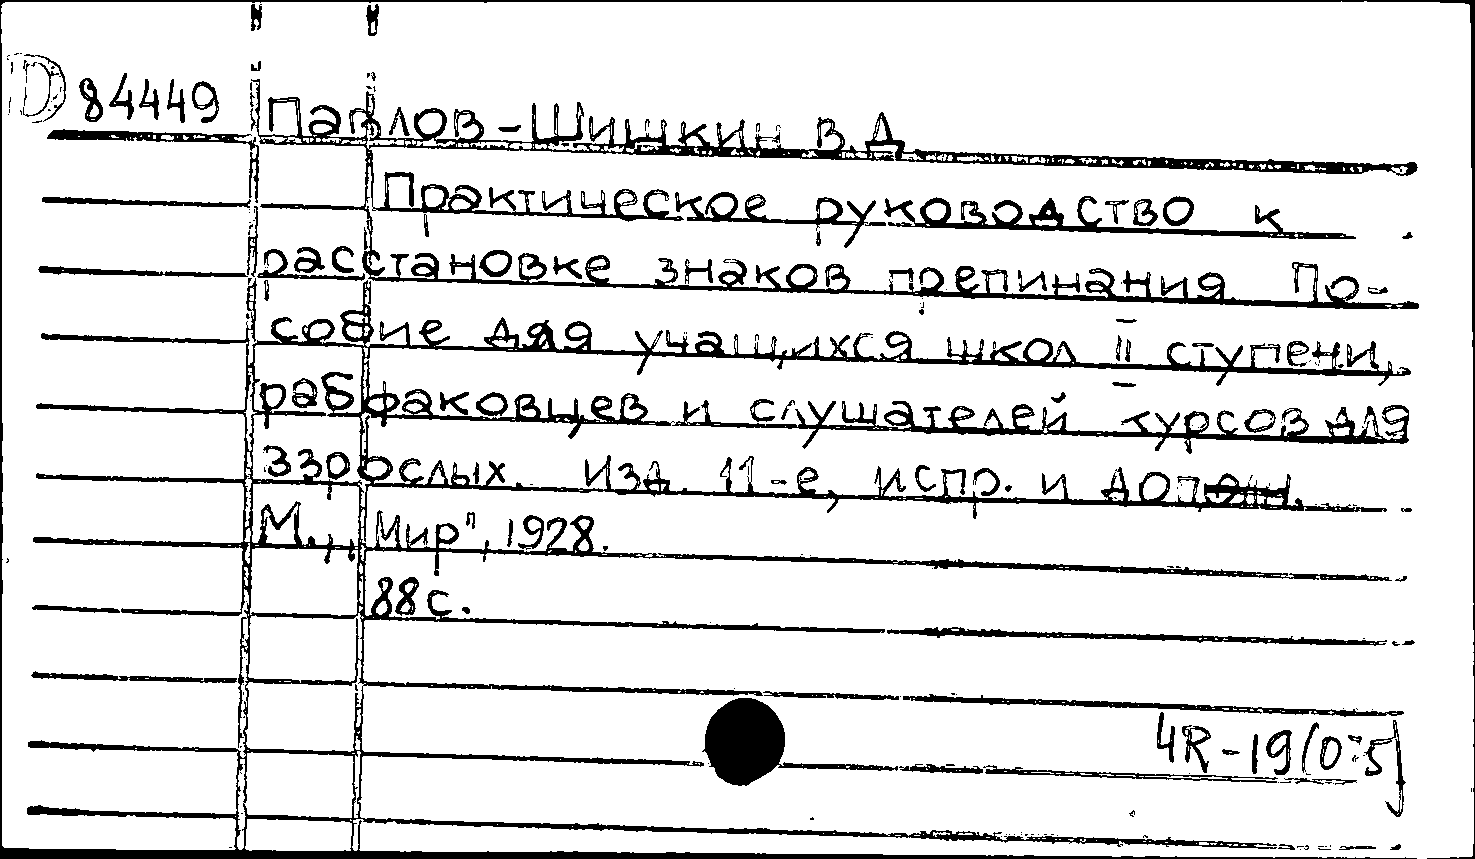 D 84449 Павлов-Шишкин В.Д.
Практическое руководство к
расстановке знаков препинания. По-
собие для учащихся школ II ступени,
рабфаковцев и слушателей курсов для
взрослых. Изд. 11-е, испр. и доп.
М., „Мир", 1928.
88 с.
4R-19(0-5)